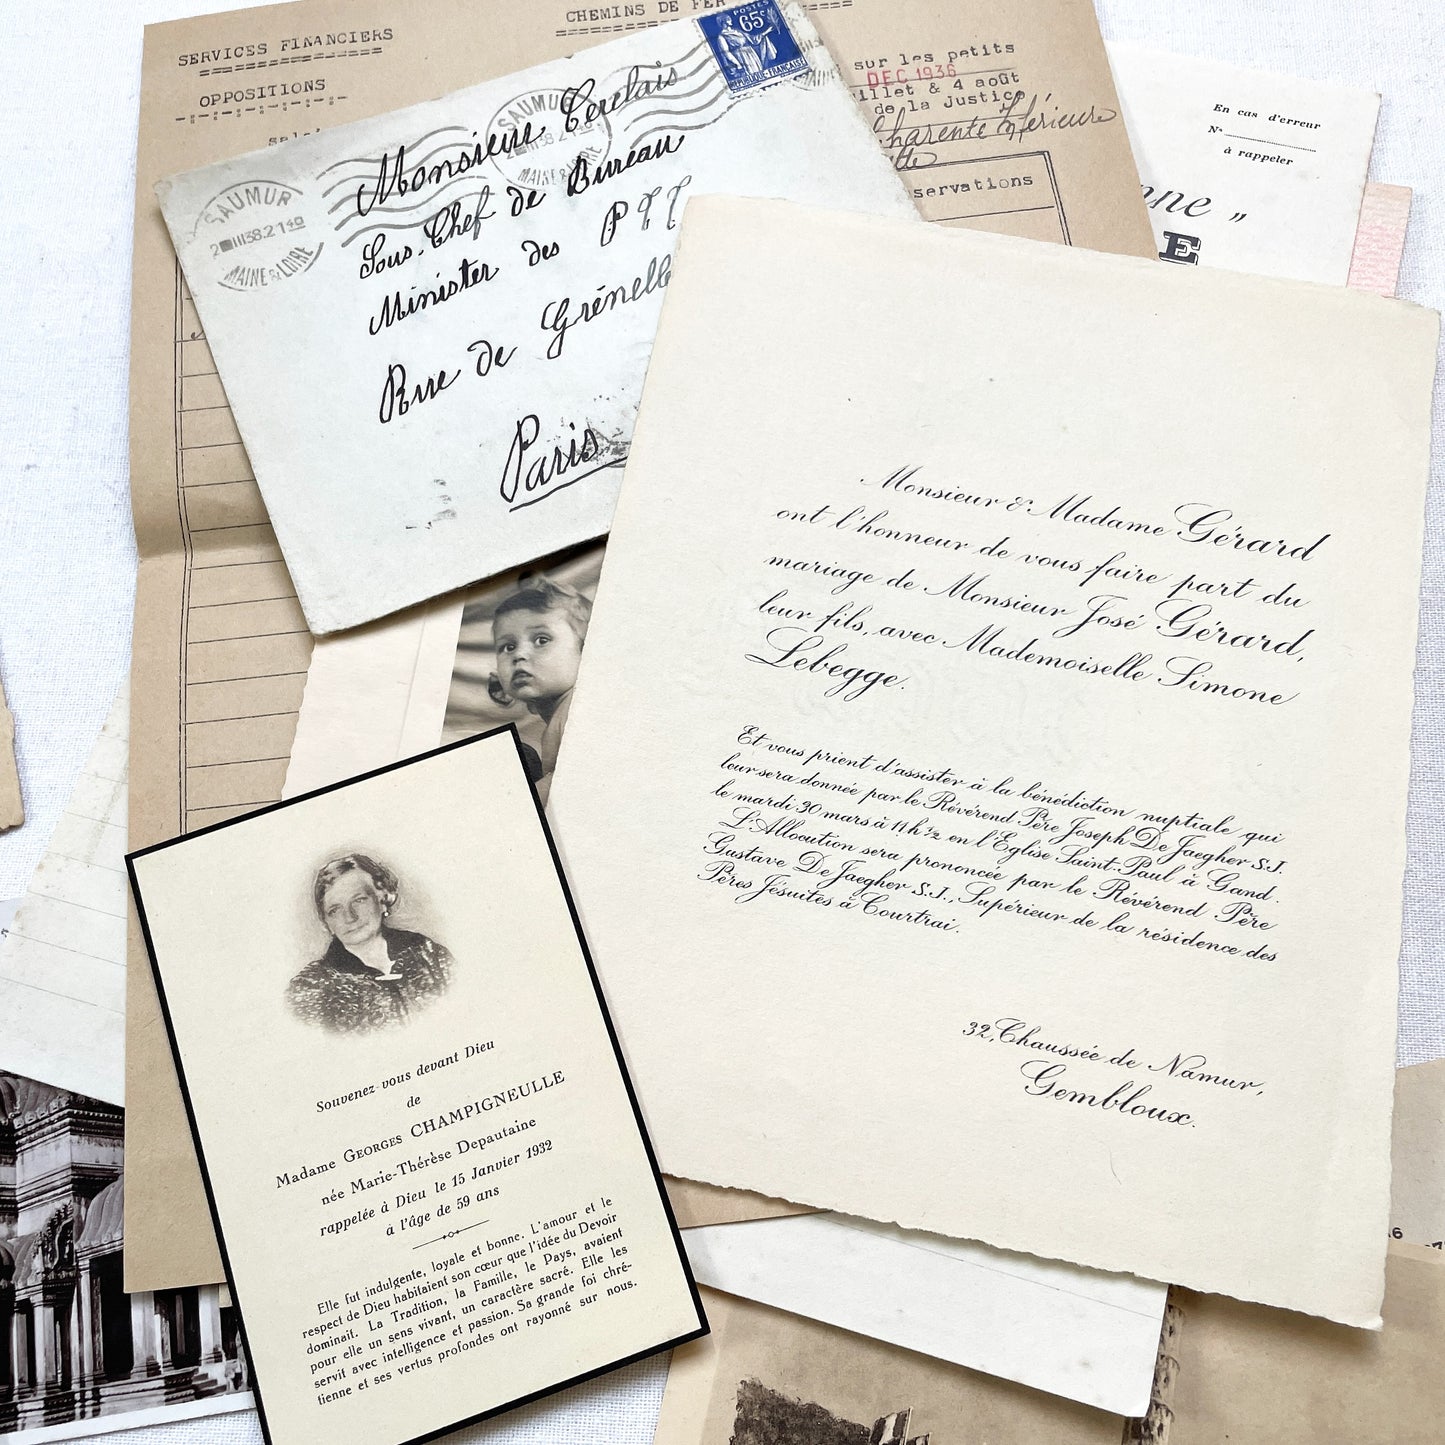 SERVICES FINANCIERS
OPPOSITIONS
CHEMINS DE FER
sur les petits
DEC 1936
illet & 4 août
de la Justice
Charente Inférieure
servations
En cas d'erreur
N°
à rappeler
nne „
E
POSTES
65c
REPUBLIQUE FRANÇAISE
SAUMUR
MAINE & LOIRE
SAUMUR
MAINE & LOIRE
Monsieur Cerclais
Sous-Chef de Bureau
Minister des PTT
Rue de Grénelle
Paris
Monsieur & Madame Gérard
ont l'honneur de vous faire part du
mariage de Monsieur José Gérard,
leur fils, avec Mademoiselle Simone
Lebegge.
Et vous prient d'assister à la bénédiction nuptiale qui
leur sera donnée par le Révérend Père Joseph De Jaegher S.J.
le mardi 30 mars à 11 h ½ en l'Eglise Saint-Paul à Gand.
L'Allocution sera prononcée par le Révérend Père
Gustave De Jaegher S.J., Supérieur de la résidence des
Pères Jésuites à Courtrai.
32, Chaussée de Namur,
Gembloux.
Souvenez-vous devant Dieu
de
Madame Georges CHAMPIGNEULLE
née Marie-Thérèse Depautaine
rappelée à Dieu le 15 Janvier 1932
à l'âge de 59 ans
Elle fut indulgente, loyale et bonne. L'amour et le
respect de Dieu habitaient son cœur que l'idée du Devoir
dominait. La Tradition, la Famille, le Pays, avaient
pour elle un sens vivant, un caractère sacré. Elle les
servit avec intelligence et passion. Sa grande foi chré-
tienne et ses vertus profondes ont rayonné sur nous.